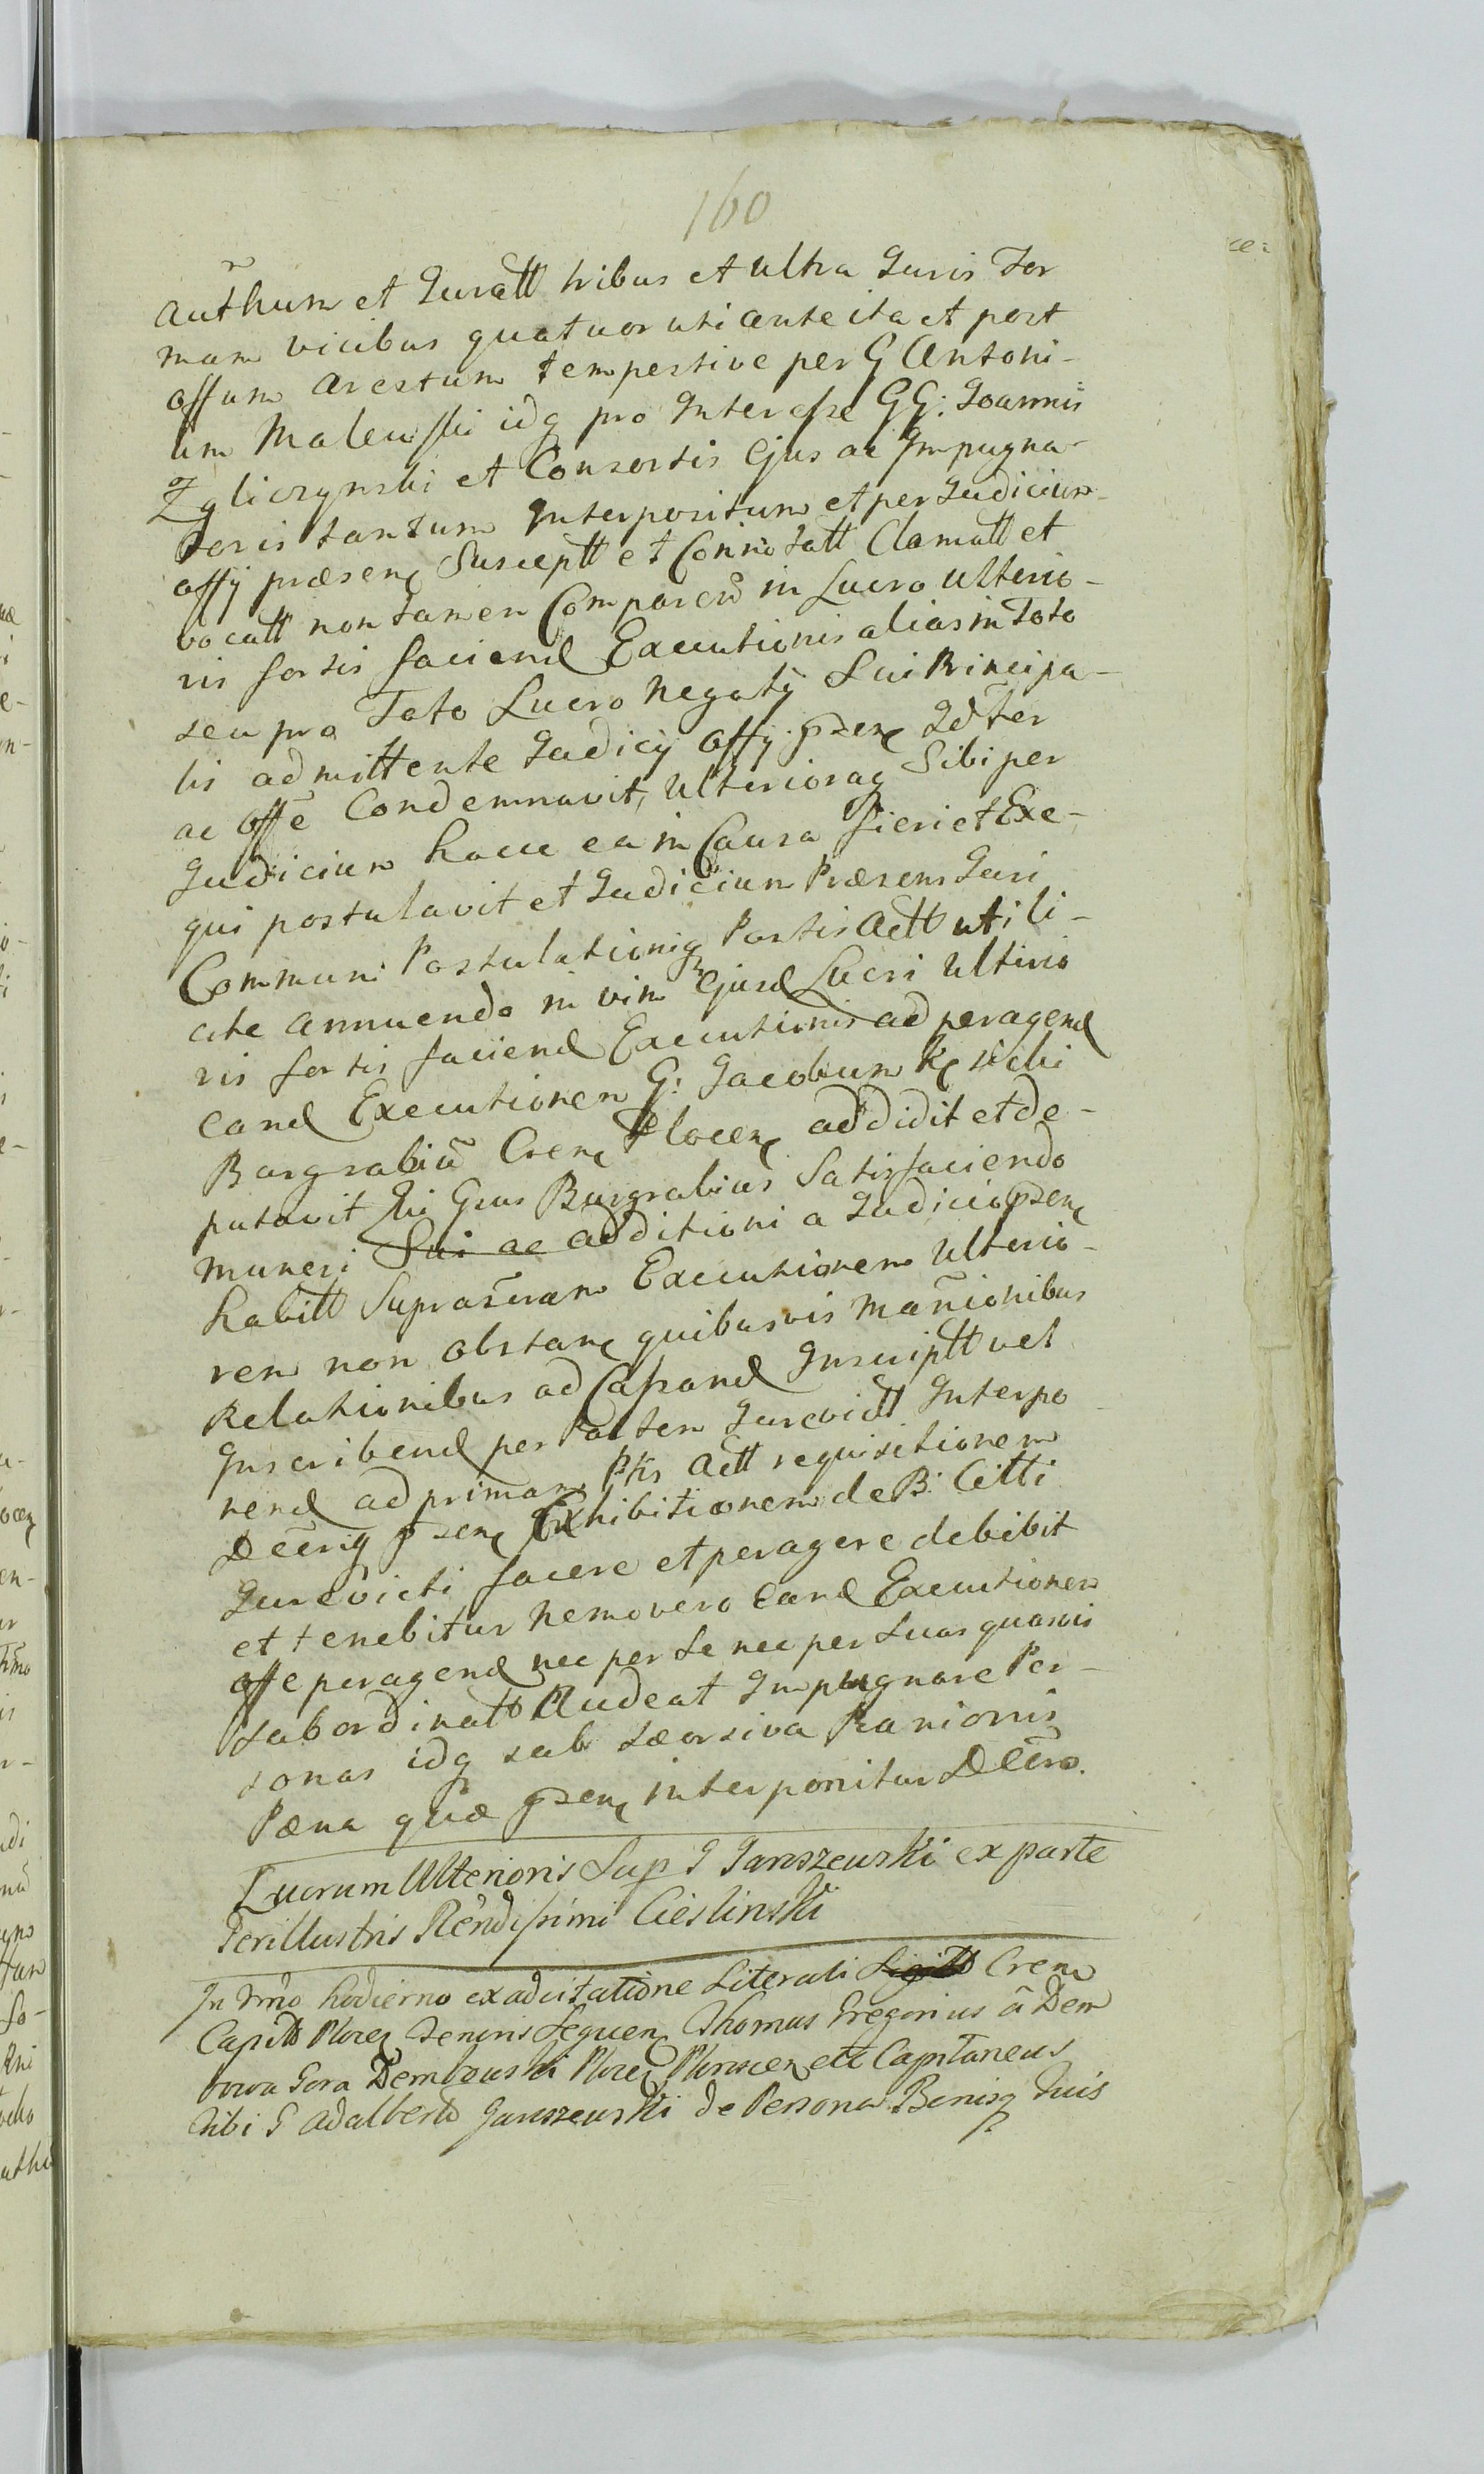 160
auth̃um et Juratt tribus et ultra Juris For
mam vicibus quatuor uti ante ita et post
offum arestum tempestive per G Antoni-
um Malewski idq pro Interesse GG: Joannis
Zgliczynski et Consortis Ejus ac Impugna-
toris tantum Interpositum et per Judicium
offÿ præsen Susceptt et Connotatt Clamatt et
vocatt non tamen Comparen in Lucro ulterio-
ris fortis faciend Executionis alias in Toto
seu pro Toto Lucro Negotÿ Sui Principa-
lis admittente Judicÿ offÿ prsen Idtter
ac offe Condemnavit, Ulterioraq Sibi per
Judicium hocce ea in Causa fieri et Exe-
qui postulavit et Judicium Præsens Juri
Communi Postulationiq Partis Actt utili-
ate annuendo in vim Ejusd Lucri Ulterio
ris fortis faciend Executionis ad peragend
eand Executionem G: Jacobum
Burgrabiũ Cren Plocen addidit et de-
putavit Qui Grus Burgrabius Satisfaciendo
muneri Sui ac additioni a Judicio prsen
habitt Suprascram Executionem ulterio-
rem non obstan quibusvis Mañionibus
Relationibus ad Cassand Inscriptt vel
Inscribend per Partem Jurevictt Interpo
nend ad primam Ptis Actt requisitionem
Decriq prsen Exhibitionem de B: Citti
Jurevicti facere et peragere debebit
et tenebitur Nemo vero Eand Executionem
offe peragend nec per se nec per suas quasvis
subordinatt Audeat Impugnare Per-
sonas idq sub seorsiva Banionis
Pæna quæ prsen interponitur Decro.
Lucrum Ulterioris Sup G Jaroszewski ex parte
Perillustris Rendissimi Cieslinski
In Tmo hodierno ex adcitatione Literali Cren
Capitt Plocen Tenoris Sequen Thomas Gregorius a Dem
bowa Gora Dembowski Plocen etc Capitaneus
Tibi G Adalberto Jaroszewski de Persona Bonisq Tuis